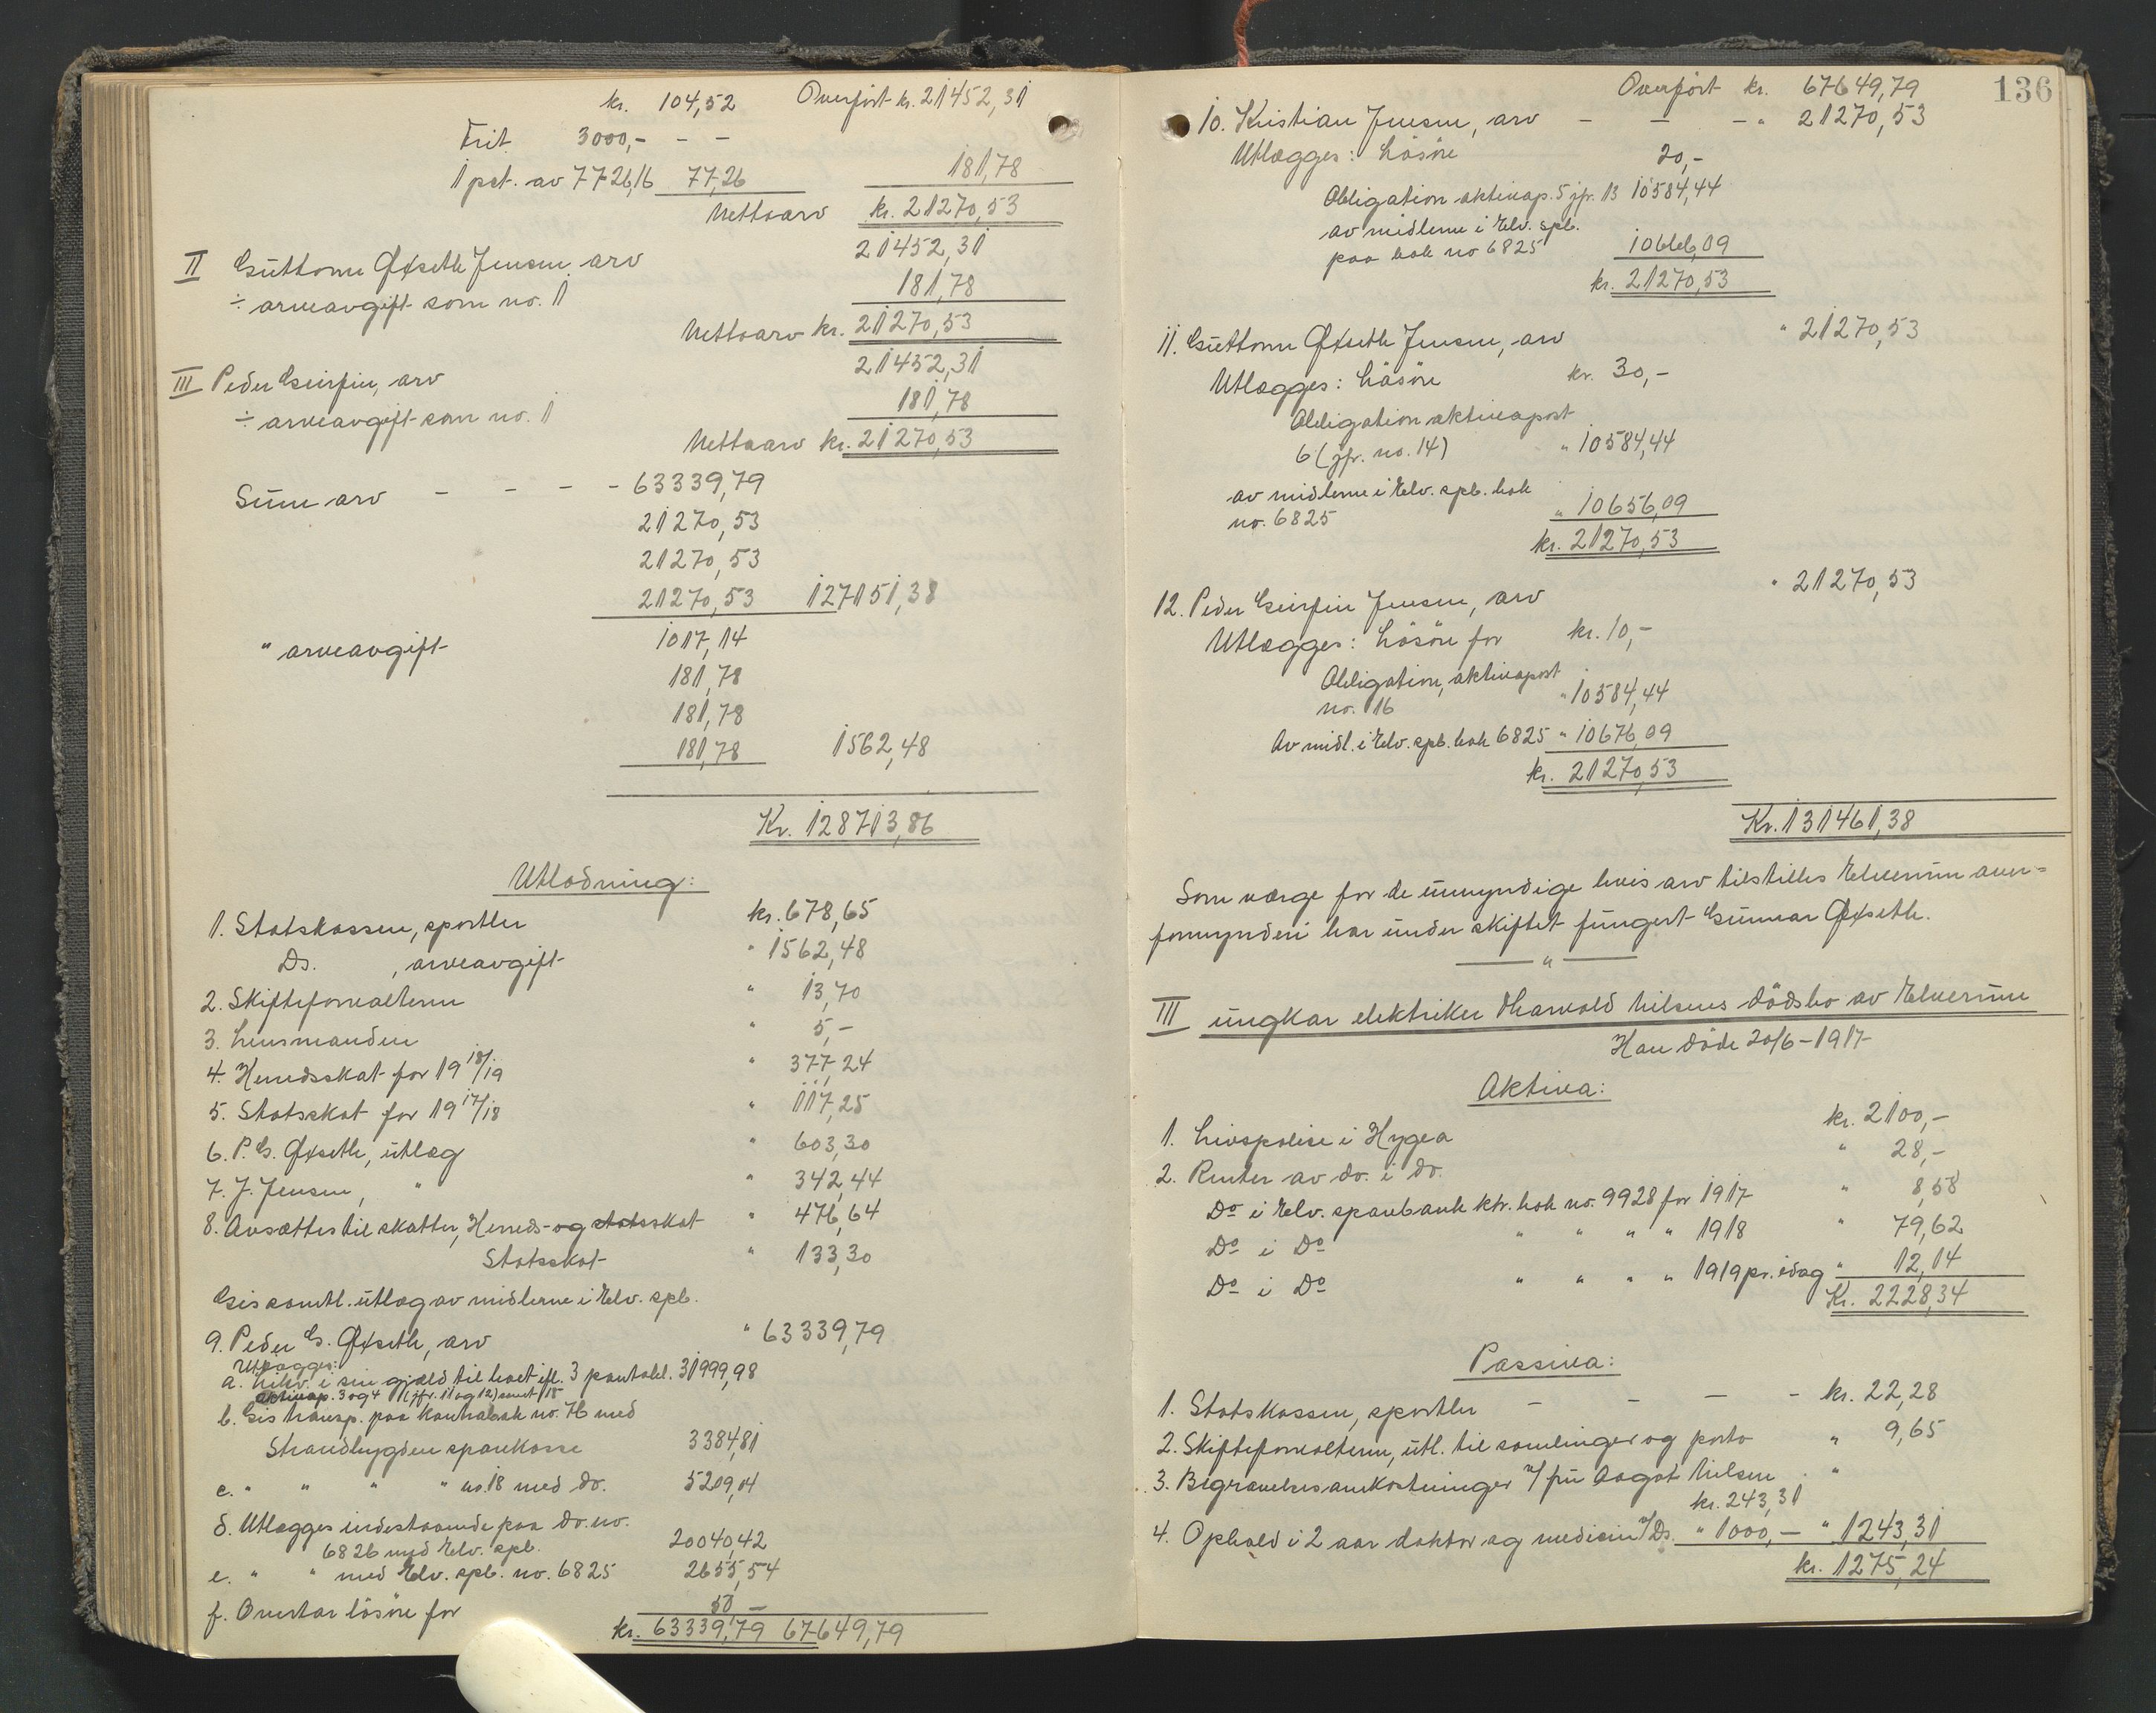 kr. 104,52 Overført kr. 21452,31
Frit 3000,- - -
1 pct. av 7726,16 77,26 181,78
Nettoarv kr. 21270,53
II Guttorm Øxseth Jensen, arv 21452,31
÷ arveavgift som no. 1 181,78
Nettoarv kr. 21270,53
III Peder Geirfin, arv 21452,31
÷ arveavgift som no. 1 181,78
Nettoarv kr. 21270,53
Sum arv - - - - 63339,79
21270,53
21270,53
21270,53 127151,38
" arveavgift 1017,14
181,78
181,78
181,78 1562,48
Kr. 128713,86
Utlodning:
1. Statskassen, sportler kr. 678,65
Ds. , arveavgift " 1562,48
2. Skifteforvalteren " 13,70
3. Lensmanden " 5,-
4. Herredsskat for 19 18/19 " 377,24
5. Statsskat for 19 17/18 " 117,25
6. P. G. Øxseth, utlæg " 603,30
7. J. Jensen, " " 342,44
8. Avsættes til skatter, Herreds- og statsskat " 476,64
Statsskat " 133,30
Gis samtl. utlæg av midlerne i Elv. spb.
9. Peder G. Øxseth, arv " 63339,79
Utlægges:
a. Likv. i sin gjæld til boet ifl. 3 pantobl. 31999,98
aktivap. 3 og 4 (jfr. 11 og 12) samt 15
b. Gis transp. paa kontrabok no. 76 med
Strandbygden sparekasse 3384,81
c. " " " " no. 18 med do. 5209,04
d. Utlægges indestaaende paa do. no.
6826 med Elv. spb. 20040,42
e. " " med Elv. spb. no. 6825 2655,54
f. Overtar løsøre for 50 -
kr. 63339,79 67649,79
136
Overført kr. 67649,79
10. Kristian Jensen, arv - - - " 21270,53
Utlægges: Løsøre 20,-
Obligation aktivap. 5 jfr. 13 10584,44
av midlerne i Elv. spb.
paa bok no 6825 10666,09
kr. 21270,53
11. Guttorm Øxseth Jensen, arv " 21270,53
Utlægges: Løsøre kr. 30,-
Obligation aktivapost
6 (jfr. no. 14) " 10584,44
av midlerne i Elv. spb. bok
no. 6825 " 10656,09
kr. 21270,53
12. Peder Geirfin Jensen, arv " 21270,53
Utlægges: Løsøre for kr. 10,-
Obligation, aktivapost
no. 16 " 10584,44
Av midl. i Elv. spb. bok 6825 " 10676,09
kr. 21270,53
Kr. 131461,38
Som værge for de umyndige hvis arv tilstilles Elverum over=
formynderi har under skiftet fungert Gunnar Øxseth.
"
III ungkar elektriker Tharvald Nilsens dødsbo av Elverum
Han døde 20/6 - 1917
Aktiva:
1. Livspolise i Hygea kr. 2100,-
2. Renter av do. i do. " 28,-
Do i Elv. sparebank ktr. bok no. 9928 for 1917 " 8,58
Do i Do " " " " 1918 " 79,62
Do i Do " " " " 1919 pr. idag " 12,14
Kr. 2228,34
Passiva:
1. Statskassen, sportler - - - - kr. 22,28
2. Skifteforvalteren, utl. til samlinger og porto " 9,65
3. Begravelsesomkostninger v/ fru Aagot Nilsen . "
kr. 243,31
4. Ophold i 2 aar doktor og medicin v/ Ds. " 1000,- " 1243,31
kr. 1275,24